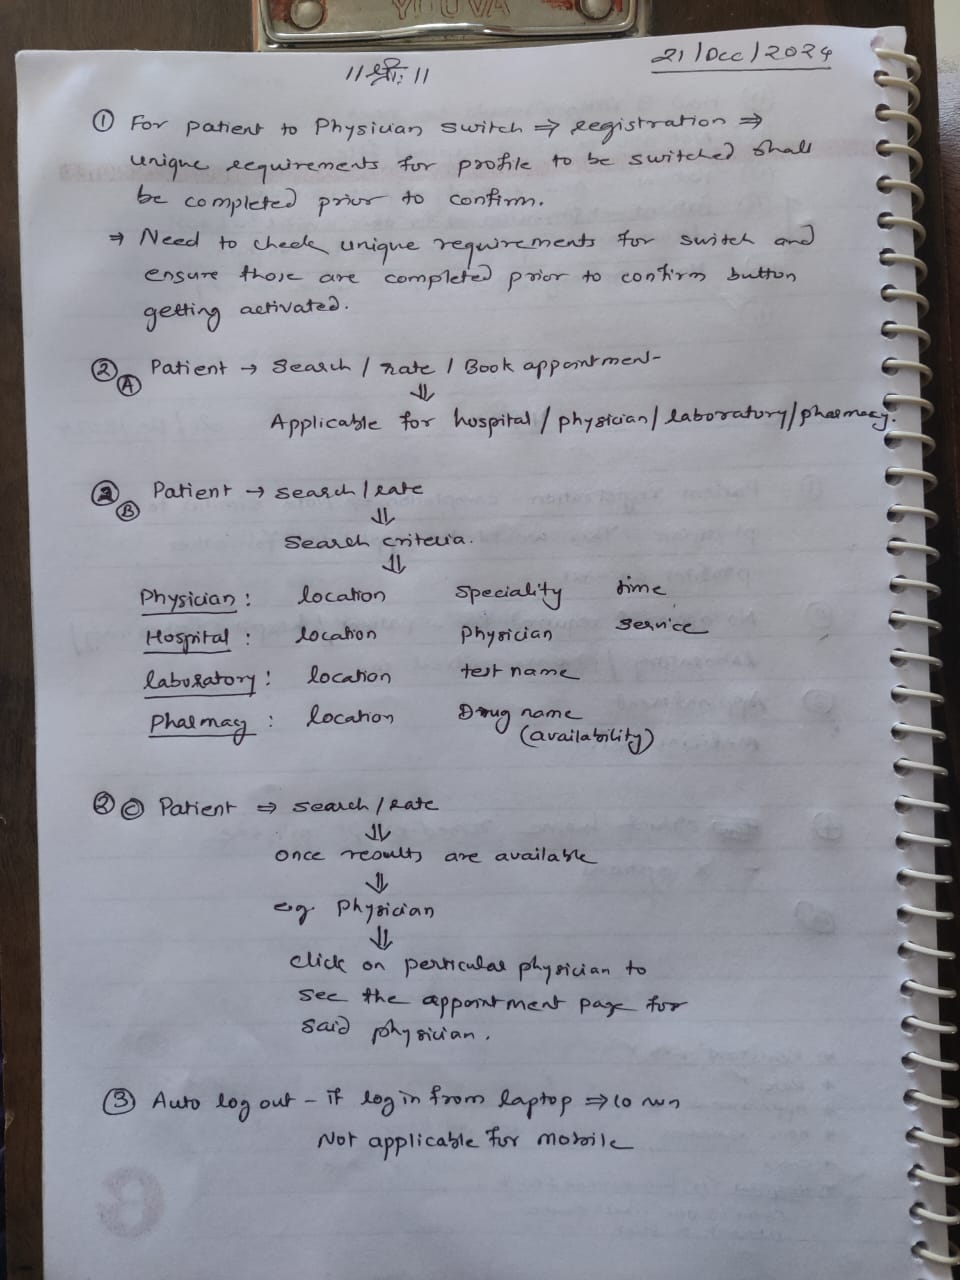 YOUVA
21/Dec/2024
||श्रीः||
① For patient to Physician switch ⇒ registration ⇒
unique requirements for profile to be switched shall
be completed prior to confirm.
⇒ Need to check unique requirements for switch and
ensure those are completed prior to confirm button
getting activated.
② Ⓐ Patient → Search / rate / Book appointment-
⇓
Applicable for hospital / physician / laboratory / pharmacy.
② Ⓑ Patient → search / rate
⇓
Search criteria.
⇓
Physician : location speciality time
Hospital : location physician service
laboratory : location test name
Pharmacy : location Drug name
(availability)
② Ⓒ Patient ⇒ search / rate
⇓
once results are available
⇓
eg. Physician
⇓
click on perticular physician to
see the appointment page for
said physician.
③ Auto log out - if log in from laptop ⇒ 10
Not applicable for mobile